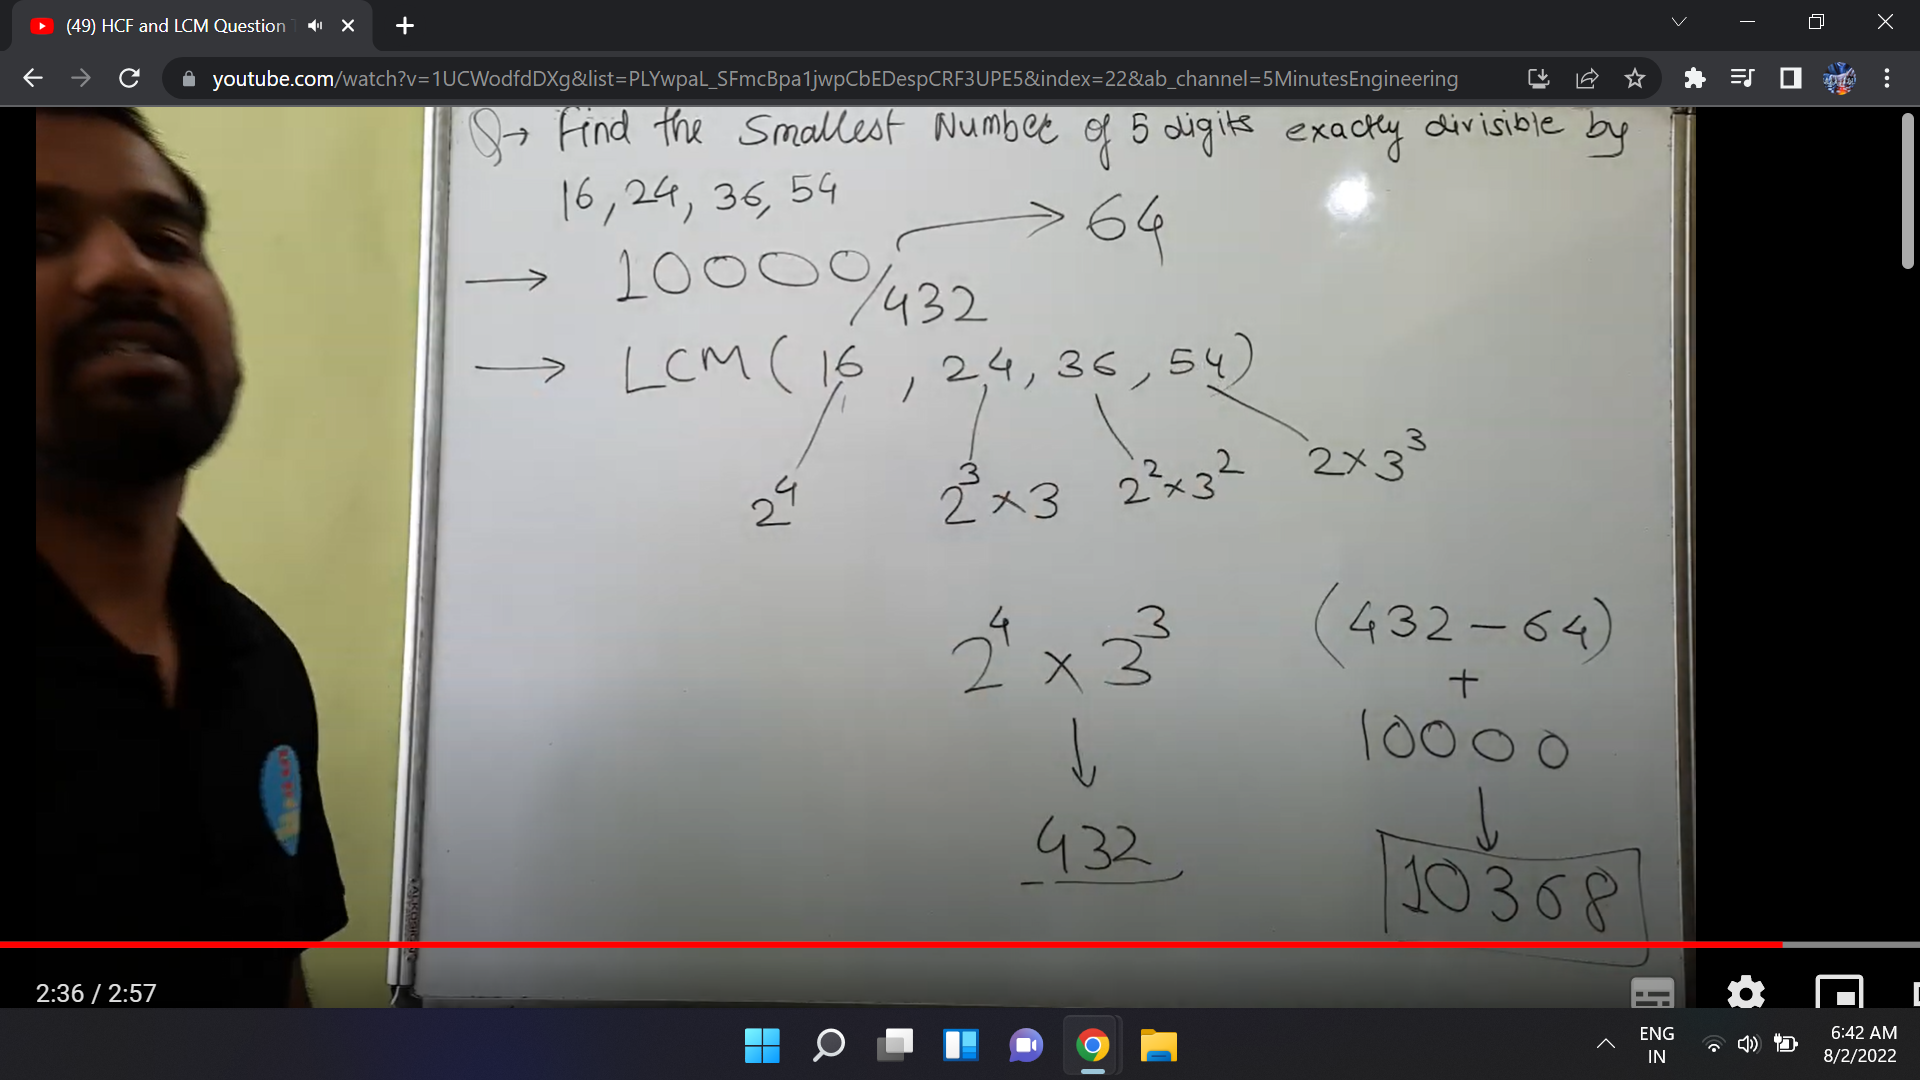 (49) HCF and LCM Question
youtube.com/watch?v=1UCWodfdDXg&list=PLYwpaL_SFmcBpa1jwpCbEDespCRF3UPE5&index=22&ab_channel=5MinutesEngineering
Q→ Find the Smallest Number of 5 digits exactly divisible by
16, 24, 36, 54
→ 10000/432 → 64
→ LCM ( 16 , 24, 36, 54)
2⁴ 2³×3 2²×3² 2×3³
2⁴ × 3³
↓
432
(432 – 64)
+
10000
↓
10368
2:36 / 2:57
ENG
IN
6:42 AM
8/2/2022